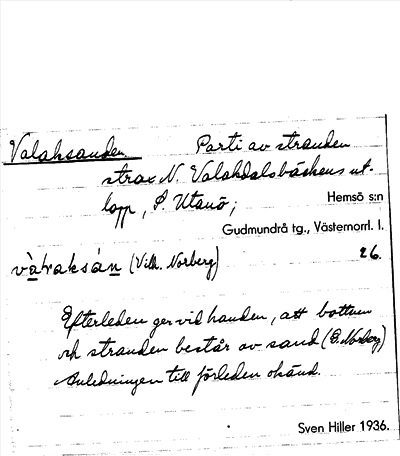 Valaksanden Parti av stranden
strax N. Valakdalsbäckens ut-
lopp, S. Utanö; Hemsö s:n
Gudmundrå tg., Västernorrl. l.
vàraksán (Vilh. Norberg) 26.
Efterleden ger vid handen, att botten
och stranden består av sand (E. Norberg)
Anledningen till förleden okänd.
Sven Hiller 1936.